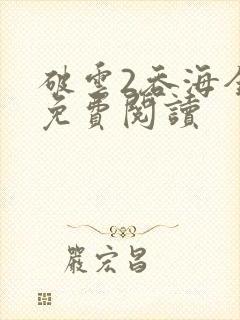 破雲2吞海全
免費閱讀
嚴宏昌